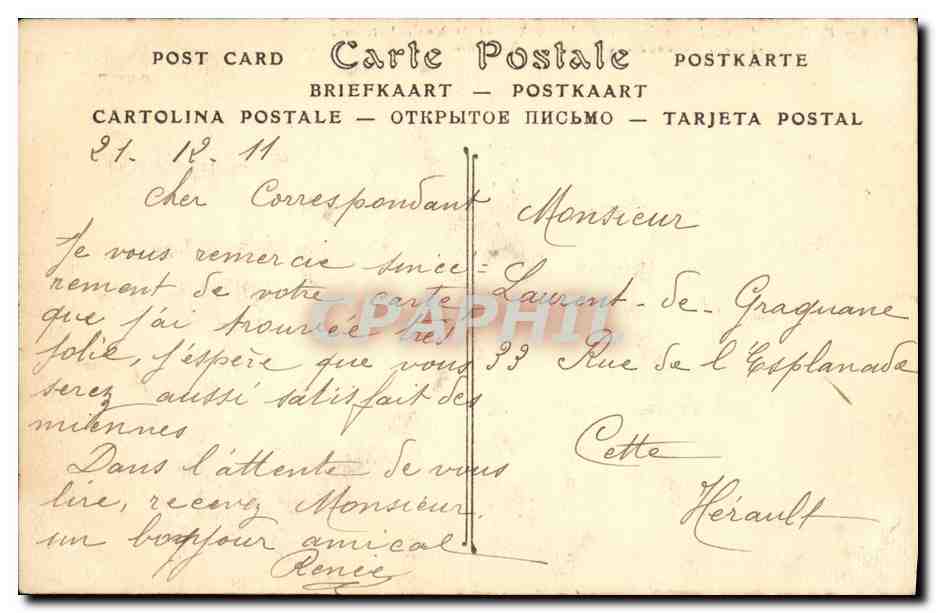 POST CARD Carte Postale POSTKARTE
BRIEFKAART — POSTKAART
CARTOLINA POSTALE — ОТКРЫТОЕ ПИСЬМО — TARJETA POSTAL
21. 12. 11
Cher Correspondant
Je vous remercie sincè=
rement de votre carte
que j'ai trouvée très
jolie, j'espère que vous
serez aussi satisfait des
miennes
Dans l'attente de vous
lire, recevez Monsieur
un bonjour amical
Renée
Monsieur
Laurent-de-Graguane
33 Rue de l'Esplanade
Cette
Hérault
CPAPHIL